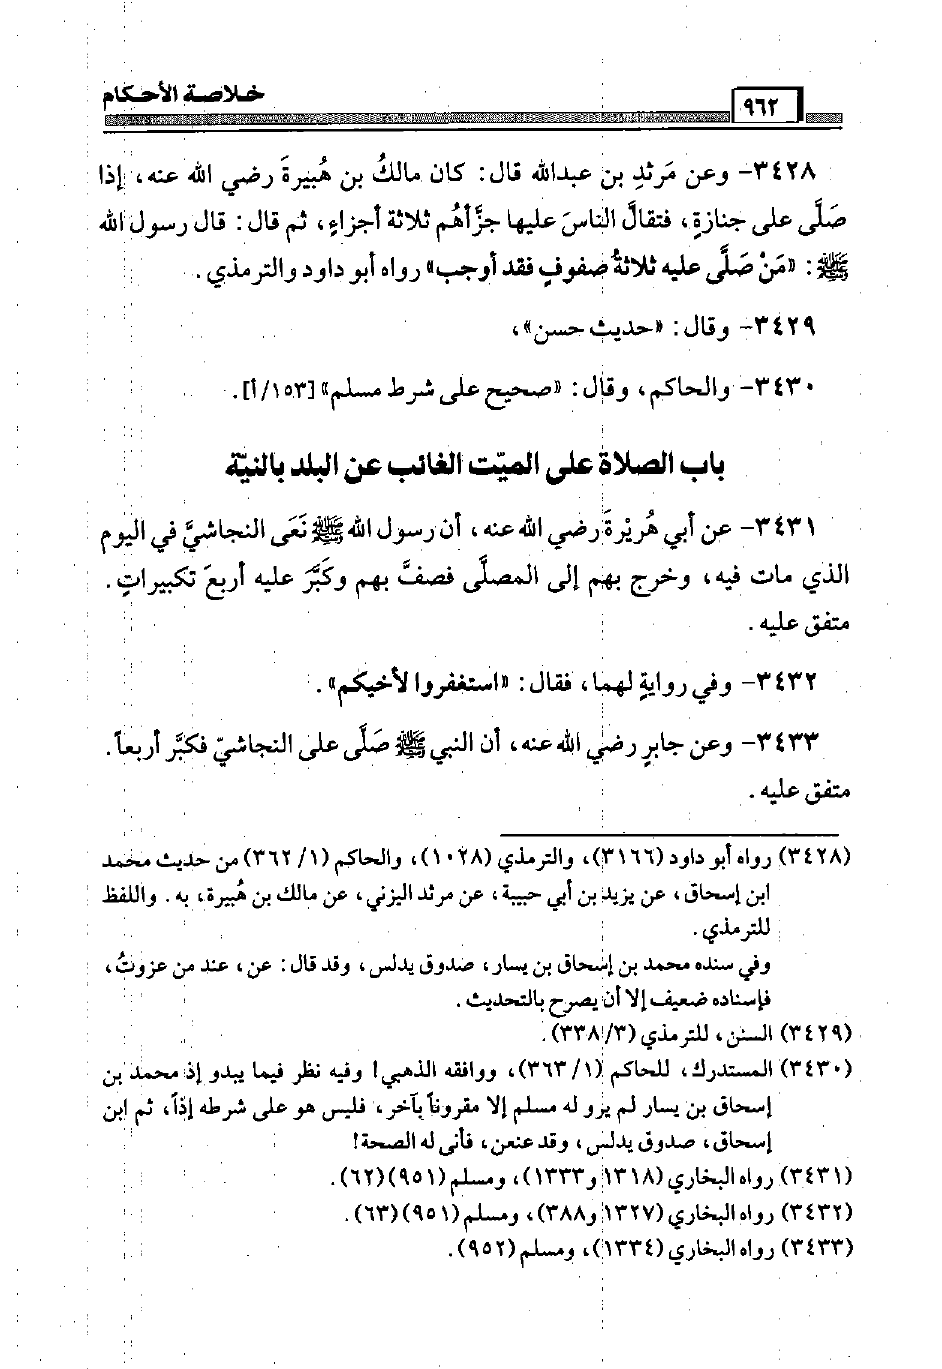 خلاصة الأحكام
٩٦٢
٣٤٢٨- وعن مَرثدِ بن عبدالله قال: كان مالكُ بن هُبيرةَ رضي الله عنه، إذا
صَلَّى على جنازةٍ، فتقالَّ الناسَ عليها جزَّأهُم ثلاثة أجزاءٍ، ثم قال: قال رسول الله
ﷺ: «مَنْ صَلَّى عليه ثلاثةُ صفوفٍ فقد أوجب» رواه أبو داود والترمذي.
٣٤٢٩- وقال: «حديث حسن»،
٣٤٣٠- والحاكم، وقال: «صحيح على شرط مسلم» [١٥٣/أ].
باب الصلاة على الميّت الغائب عن البلد بالنيّة
٣٤٣١- عن أبي هُريْرةَ رضي الله عنه، أن رسول الله ﷺ نَعَى النجاشيَّ في اليوم
الذي مات فيه، وخرج بهم إلى المصلَّى فصفَّ بهم وكَبَّرَ عليه أربعَ تكبيراتٍ.
متفق عليه.
٣٤٣٢- وفي روايةٍ لهما، فقال: «استغفروا لأخيكم».
٣٤٣٣- وعن جابرٍ رضي الله عنه، أن النبي ﷺ صَلَّى على النجاشيّ فكبَّر أربعاً.
متفق عليه.
(٣٤٢٨) رواه أبو داود (٣١٦٦)، والترمذي (١٠٢٨)، والحاكم (١/ ٣٦٢) من حديث محمد
ابن إسحاق، عن يزيد بن أبي حبيبة، عن مرثد اليزني، عن مالك بن هُبيرة، به. واللفظ
للترمذي.
وفي سنده محمد بن إسحاق بن يسار، صدوق يدلس، وقد قال: عن، عند من عزوتُ،
فإسناده ضعيف إلا أن يصرح بالتحديث.
(٣٤٢٩) السنن، للترمذي (٣/ ٣٣٨).
(٣٤٣٠) المستدرك، للحاكم (١/ ٣٦٣)، ووافقه الذهبي! وفيه نظر فيما يبدو إذ محمد بن
إسحاق بن يسار لم يرو له مسلم إلا مقروناً بآخر، فليس هو على شرطه إذاً، ثم ابن
إسحاق، صدوق يدلس، وقد عنعن، فأنى له الصحة!
(٣٤٣١) رواه البخاري (١٣١٨ و١٣٣٣)، ومسلم (٩٥١)(٦٢).
(٣٤٣٢) رواه البخاري (١٣٢٧ و٣٨٨)، ومسلم (٩٥١)(٦٣).
(٣٤٣٣) رواه البخاري (١٣٣٤)، ومسلم (٩٥٢).